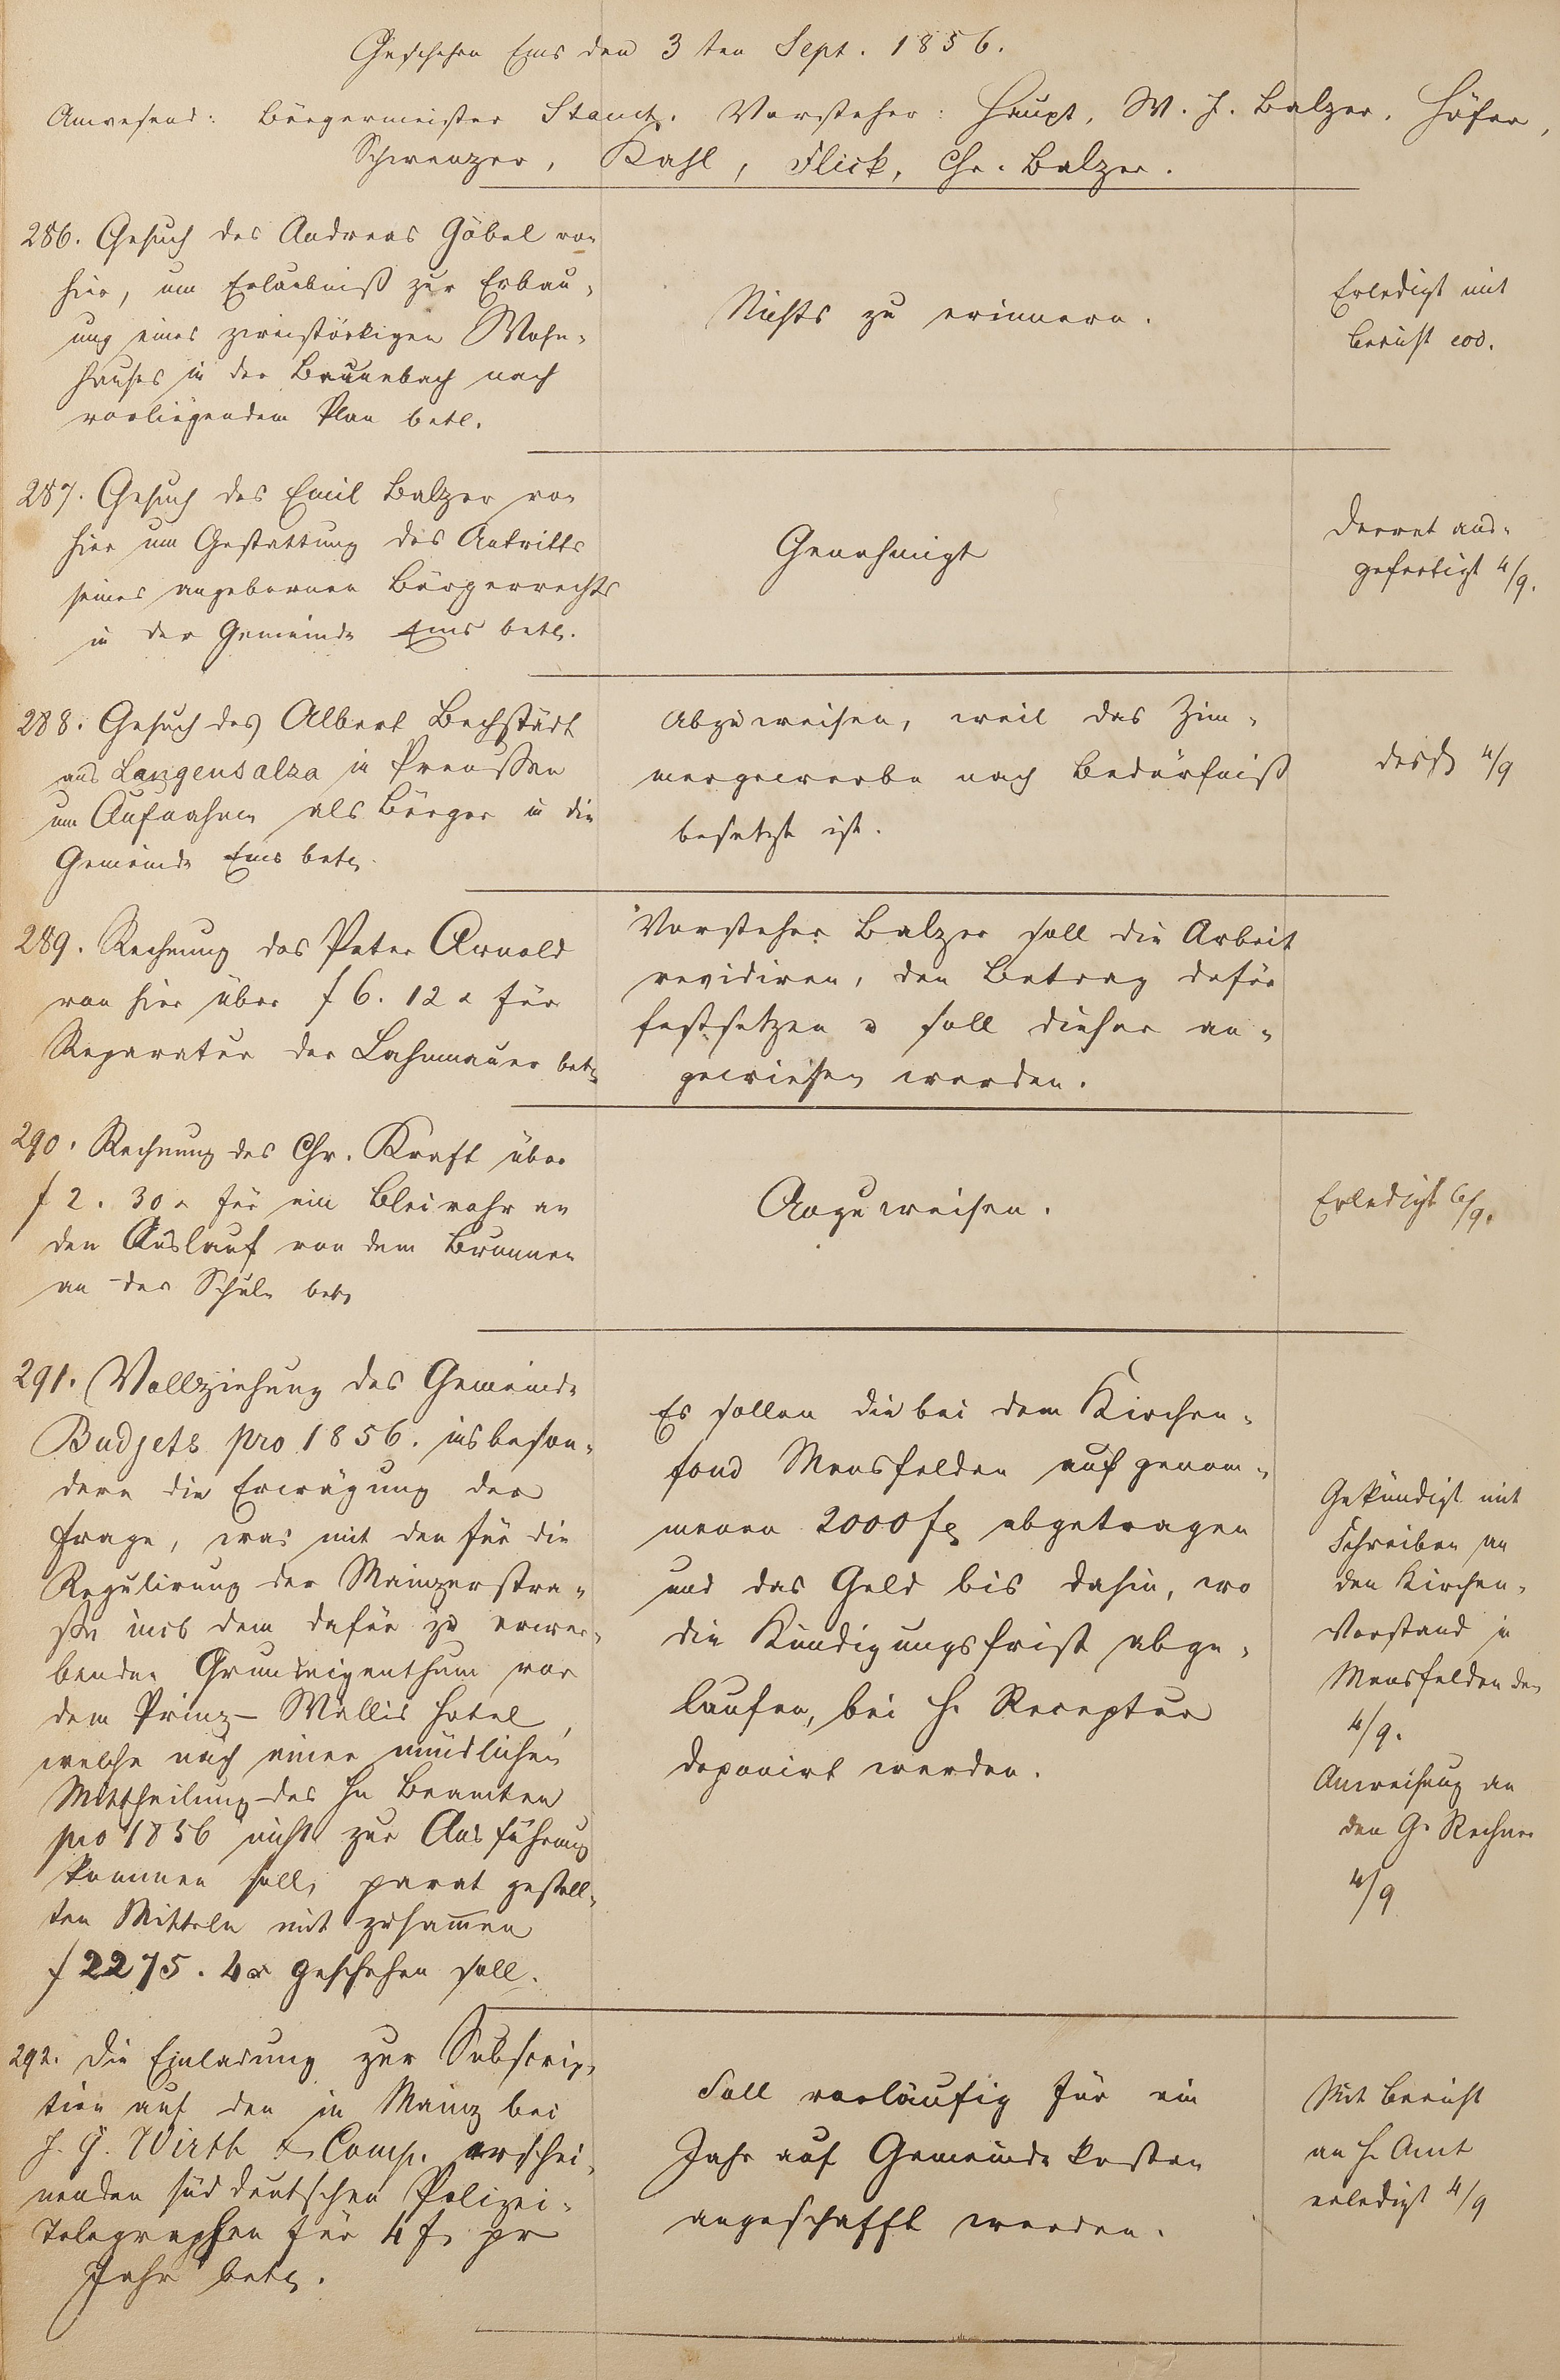 Geschehen Ems den 3ten Sept. 1856.
Anwesend: Bürgermeister Stamt. Vorsteher: Haupt, W. J. Balzer, Höfer,
Schwenzer, Kahl, Flick, Chr. Balzer.
286. Gesuch des Andreas Göbel von
hier, um Erlaubniß zur Erbau-
ung eines zweistöckigen Wohn-
hauses in der Braunebach nach
vorliegendem Plan betr.
Nichts zu erinnern.
Erledigt mit
Bericht eod.
287. Gesuch des Emil Balzer von
hier um Gestattung des Antritts
seines angebornen Bürgerrechts
in der Gemeinde Ems betr.
Genehmigt
Decret aus-
gefertigt 4/9.
288. Gesuch des Albert Bechstädt
aus Langensalza in Preussen
um Aufnahme als Bürger in die
Gemeinde Ems betr.
Abzuweisen, weil das Zim-
mergewerbe nach Bedürfniß
besetzt ist.
desgl 4/9
289. Rechnung des Peter Arnold
von hier über f 6. 12 x für
Reparatur der Lahnmauer betr
Vorsteher Balzer soll die Arbeit
revidiren, den Betrag dafür
festsetzen u soll dieser an-
gewiesen werden.
290. Rechnung des Chr. Kraft über
f 2. 30 x für ein Bleirohr an
den Auslauf von dem Brunnen
an der Schule betr
Anzuweisen.
Erledigt 6/9.
291. Vollziehung des Gemeinde
Budjets pro 1856. insbeson-
dere die Erwägung der
Frage, was mit den für die
Regulirung der Mainzerstra-
ße incl dem dafür zu erwer-
benden Grundeigenthum vor
dem Prinz-Wallis Hotel,
welche nach einer mündlichen
Mittheilung des Hn Beamten
pro 1856 nicht zur Ausführung
kommen soll, parat gestell-
ten Mitteln mit zusammen
f 2275. 4 x geschehen soll.
Es sollen die bei dem Kirchen-
fond Mensfelden aufgenom-
menen 2000 fl abgetragen
und das Geld bis dahin, wo
die Kündigungsfrist abge-
laufen, bei H. Receptur
deponirt werden.
Gekündigt mit
Schreiben an
den Kirchen-
Vorstand in
Mensfelden den
4/9.
Anweisung an
den G. Rechner
4/9
292. Die Einladung zur Subscrip-
tion auf den in Mainz bei
J. G. Wirth & Comp. erschei-
nenden süddeutschen Polizei-
Telegraphen für 4 f. pr
Jahr betr.
Soll vorläufig für ein
Jahr auf Gemeindekosten
angeschafft werden.
Mit Bericht
an H. Amt
erledigt 4/9